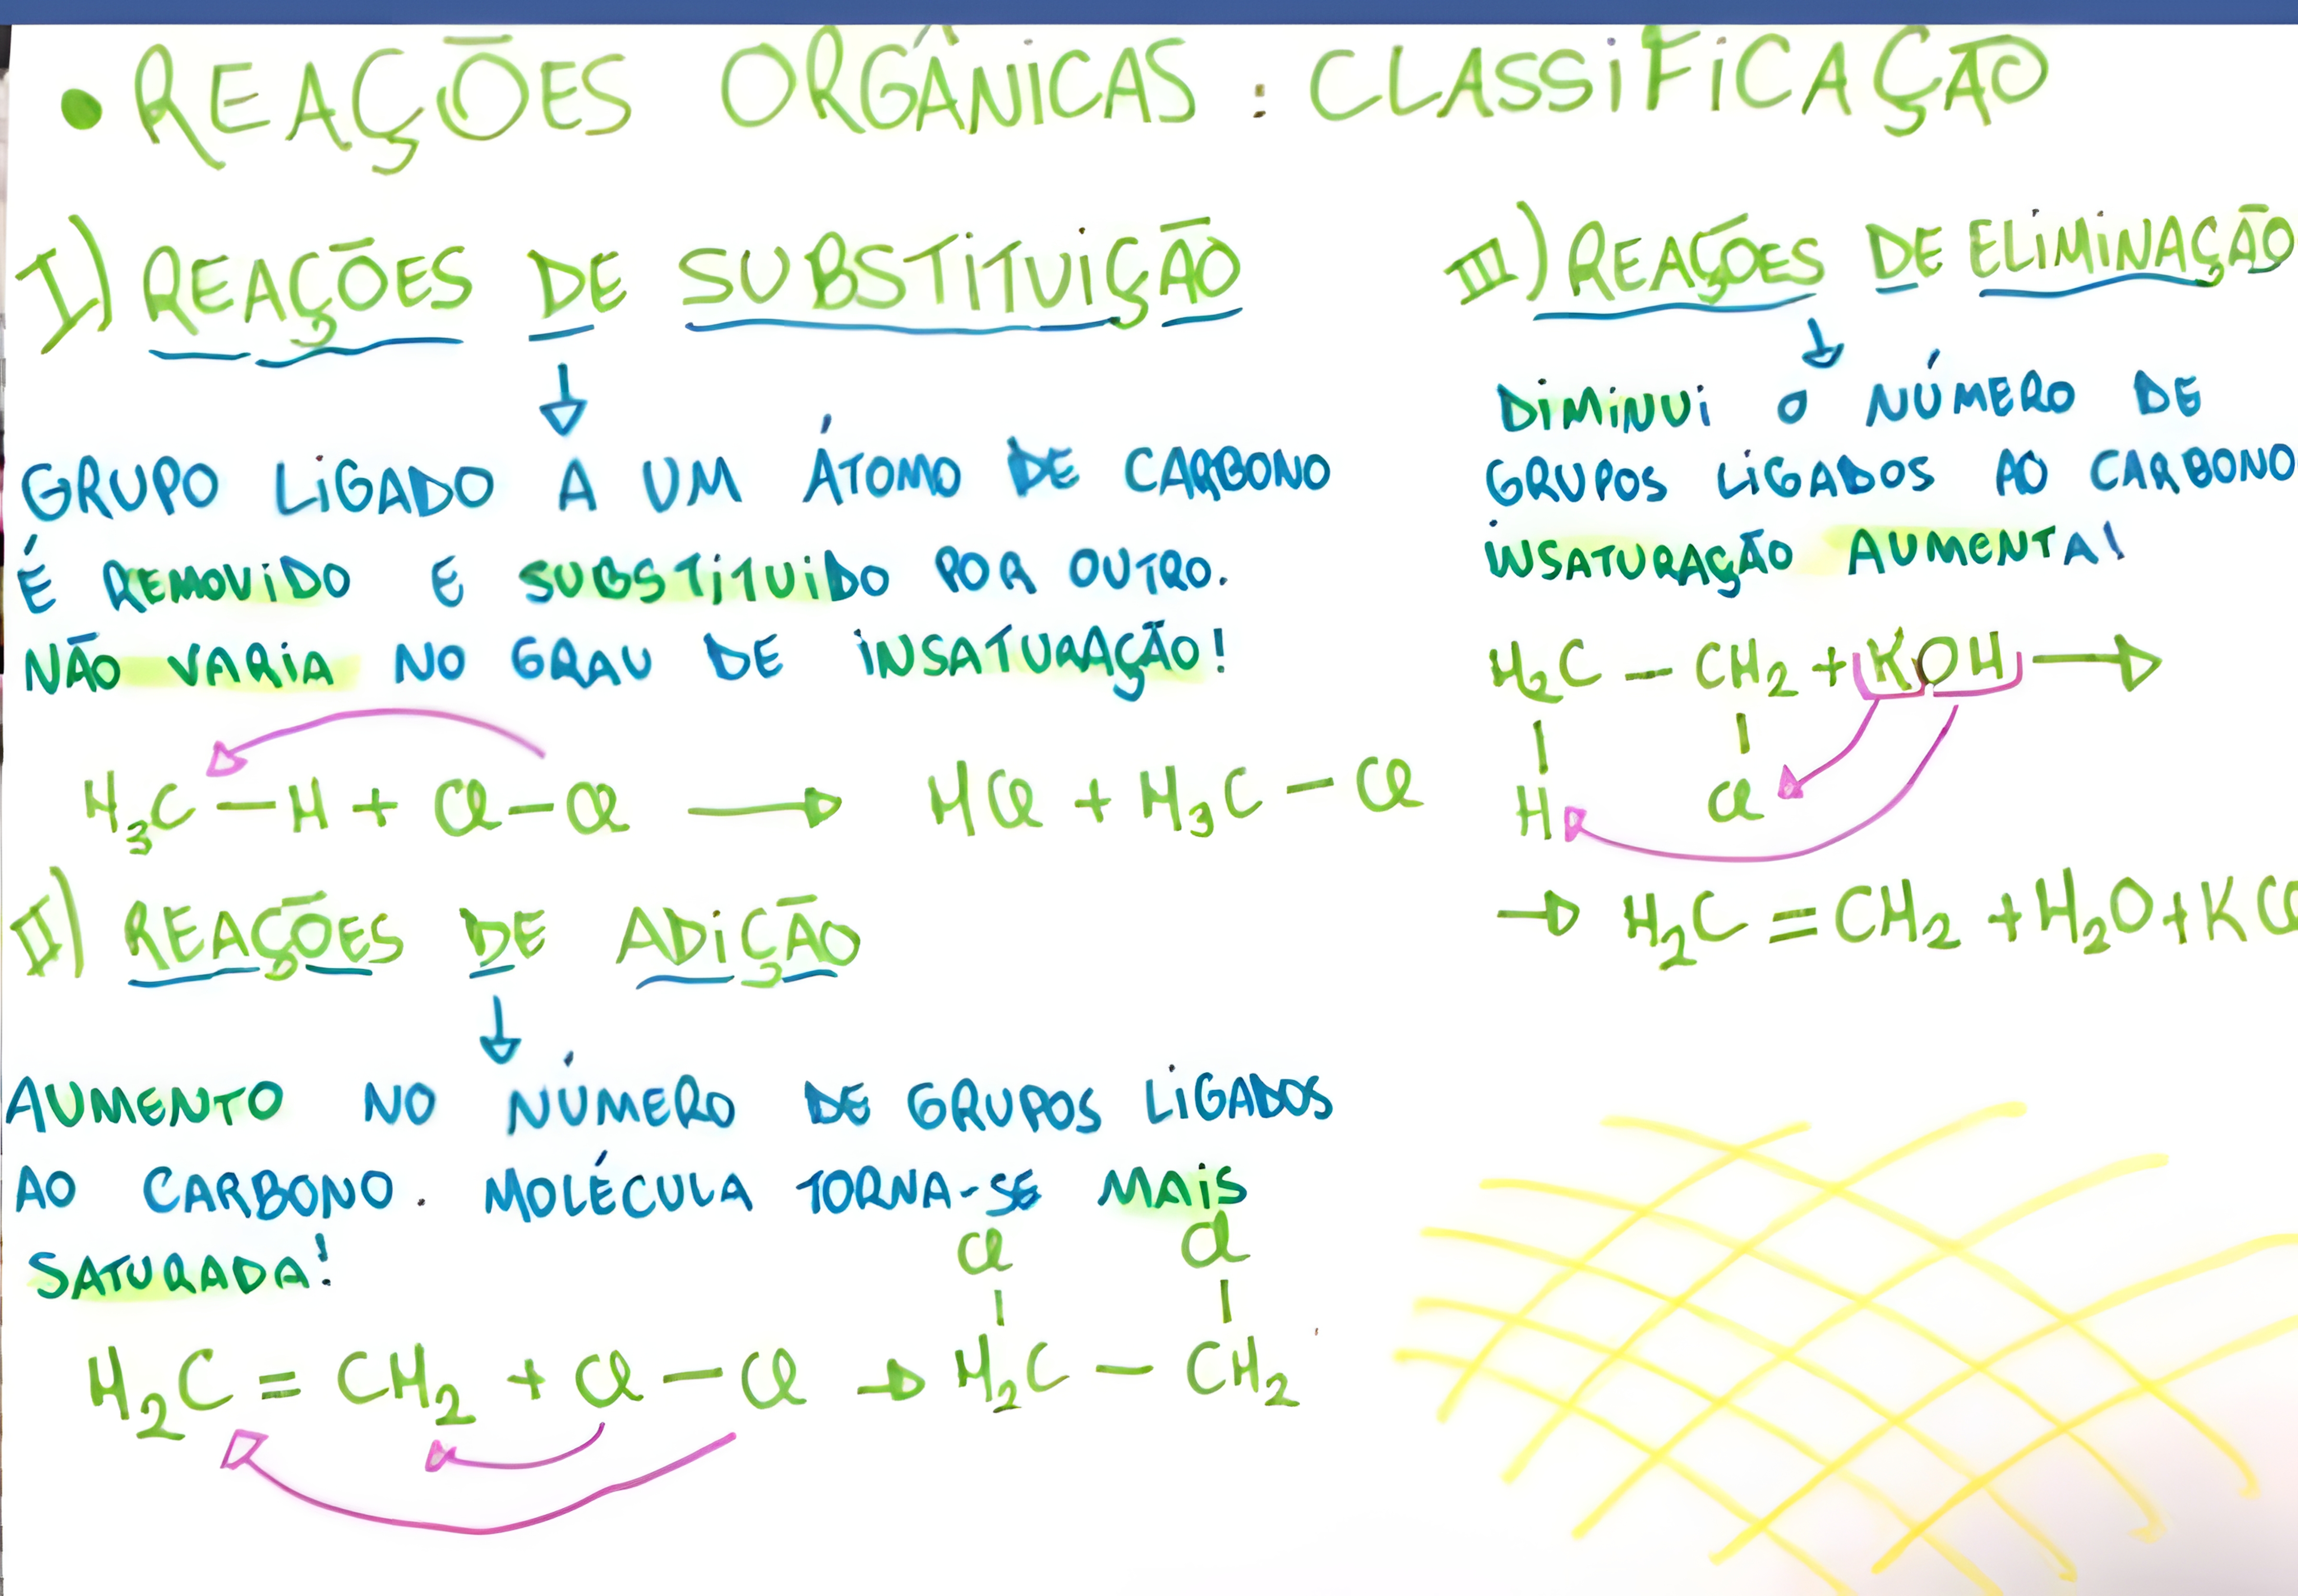 • REAÇÕES ORGÂNICAS : CLASSIFICAÇÃO
I) REAÇÕES DE SUBSTITUIÇÃO
GRUPO LIGADO A UM ÁTOMO DE CARBONO
É REMOVIDO E SUBSTITUIDO POR OUTRO.
NÃO VARIA NO GRAU DE INSATURAÇÃO!
H₃C — H + Cl — Cl → HCl + H₃C — Cl
II) REAÇÕES DE ADIÇÃO
AUMENTO NO NÚMERO DE GRUPOS LIGADOS
AO CARBONO. MOLÉCULA TORNA-SE MAIS
SATURADA!
Cl Cl
H₂C = CH₂ + Cl — Cl → H₂C — CH₂
III) REAÇÕES DE ELIMINAÇÃO
DIMINUI O NÚMERO DE
GRUPOS LIGADOS AO CARBONO
INSATURAÇÃO AUMENTA!
H₂C — CH₂ + KOH →
H Cl
→ H₂C = CH₂ + H₂O + KCl